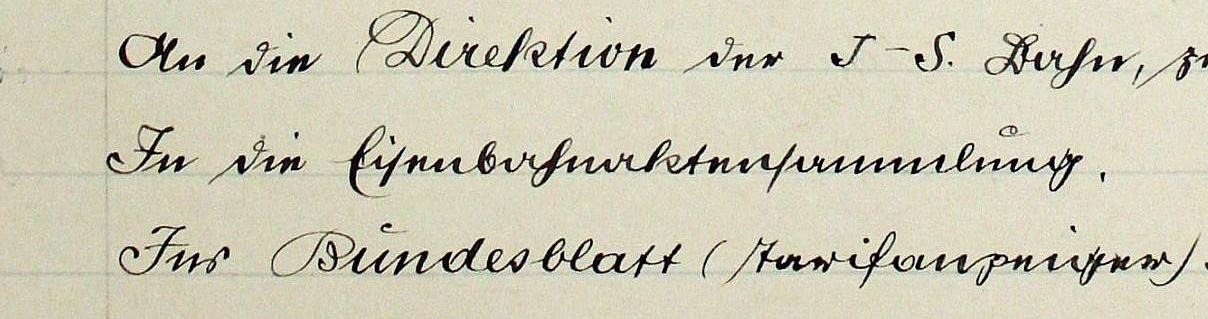 An die Direktion der J-S. Bahn,
In die Eisenbahnaktensammlung.
Ins Bundesblatt (Tarifanzeiger).